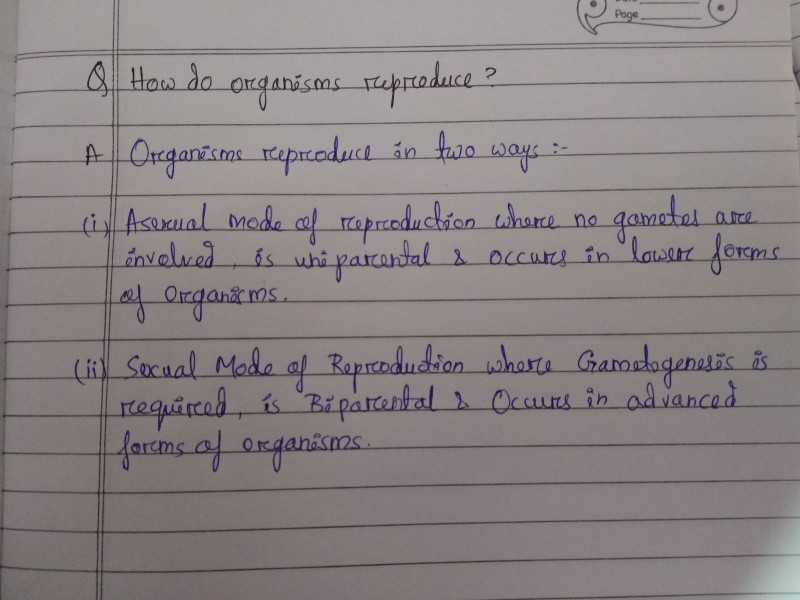 Page
Q How do organisms reproduce?
A Organisms reproduce in two ways :-
(i) Asexual mode of reproduction where no gametes are
involved, is uniparental & occurs in lower forms
of Organisms.
(ii) Sexual Mode of Reproduction where Gametogenesis is
required, is Biparental & Occurs in advanced
forms of organisms.